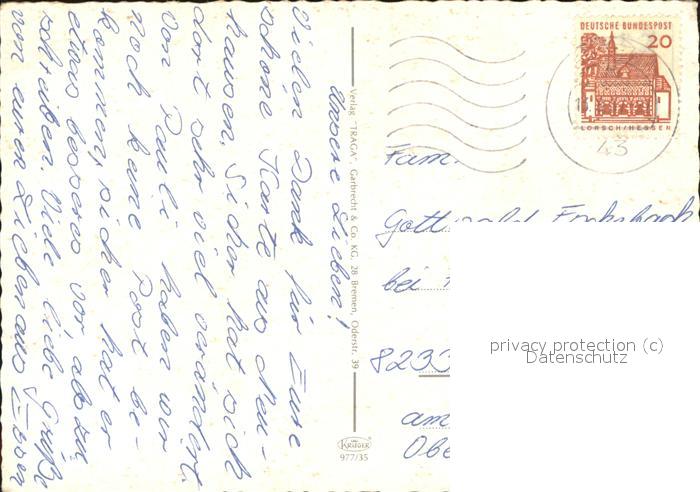 Unsere Lieben!
Vielen Dank für Eure
schöne Karte aus Neu-
hausen. Sicher hat sich
dort sehr viel verändert.
Von Pauli haben wir
noch keine Post be-
kommen, sicher hat er
etwas besseres vor, als zu
schreiben. Viele liebe Grüße
von euren Lieben aus Essen
Verlag "TRAGA", Garbrecht & Co. KG, 28 Bremen, Oderstr. 39
KRÜGER
977/35
DEUTSCHE BUNDESPOST
20
LORSCH/HESSEN
43
Fam.
bei
8233
am
Obe
privacy protection (c)
Datenschutz